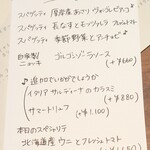 スパゲッティ 厚岸産あさり ヴォンゴレビアンコ♪
スパゲッティ 長なすとモッツァレラ フレッシュトマト
スパゲッティ 季節野菜とアンチョビ♪
自家製 ニョッキ ゴルゴンゾーラソース
(+¥660)
♪追加でいかがでしょうか
イタリア サルディーニャの カラスミ
(+¥880)
サマートリュフ
(+¥1,100)
本日のスペシャリテ
北海道産 ウニとフレッシュトマト